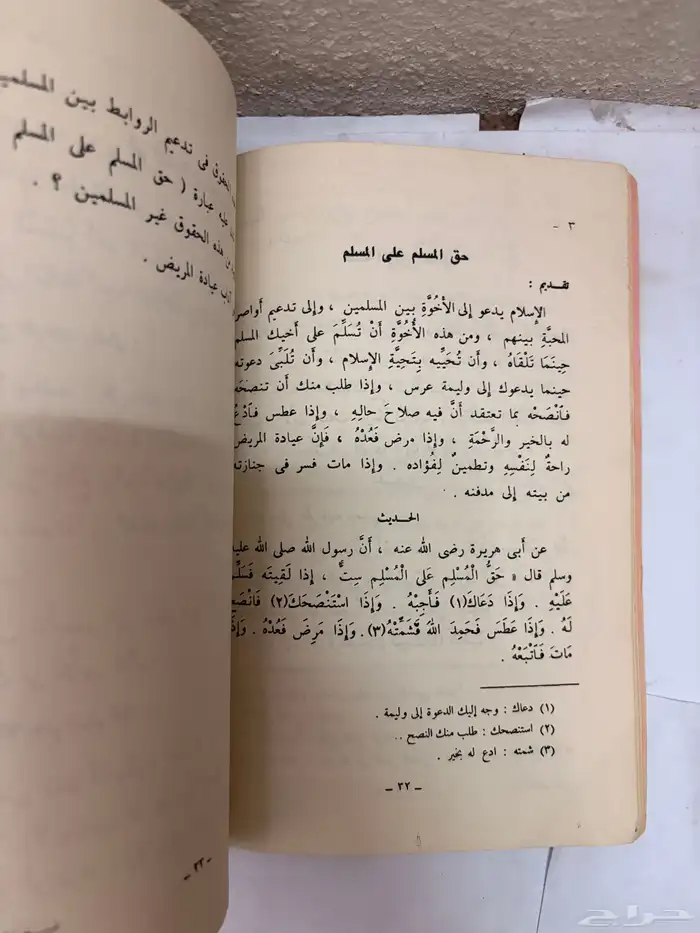 ٣ -
حق المسلم على المسلم
تقديم :
الإسلام يدعو إلى الأُخُوَّةِ بين المسلمين ، وإلى تدعيم أواصر
المحبَّةِ بينهم ، ومن هذه الأُخُوَّةِ أَنْ تُسَلِّمَ على أخيك المسلم
حِينَمَا تَلْقَاهُ ، وأن تُحَيِّيه بِتَحِيَّةِ الإسلام ، وأن تُلَبِّىَ دعوته
حينما يدعوك إلى وليمة عرس ، وإذا طلب منك أن تنصحَه
فَانْصَحْه بما تعتقد أنَّ فيه صلاحَ حالِهِ ، وإذا عطس فَادْعُ
له بالخير والرَّحْمَةِ ، وإذا مرض فَعُدْهُ ، فَإِنَّ عيادة المريض
راحةٌ لِنَفْسِهِ وتطمينٌ لِفُؤاده . وإذا مات فسر فى جنازته
من بيته إلى مدفنه .
الحديث
عن أبى هريرة رضى الله عنه ، أَنَّ رسول الله صلى الله عليه
وسلم قال « حَقُّ الْمُسْلِمِ عَلَى الْمُسْلِمِ سِتٌّ ، إِذا لَقِيتَه فَسَلِّمْ
عَلَيْهِ . وَإِذَا دَعَاكَ(١) فَأَجِبْهُ . وَإِذَا اسْتَنْصَحَكَ(٢) فَانْصَحْ
لَهُ . وَإِذَا عَطَسَ فَحَمِدَ اللهَ فَشَمِّتْهُ(٣). وَإِذَا مَرِضَ فَعُدْهُ . وَإِذَا
مَاتَ فَاتْبَعْهُ .
(١) دعاك : وجه إليك الدعوة إلى وليمة .
(٢) استنصحك : طلب منك النصح ..
(٣) شمته : ادع له بخير .
- ٣٢ -
الحقوق فى تدعيم الروابط بين المسلمين
عليه عبارة ( حق المسلم على المسلم
هذه الحقوق غير المسلمين ؟ .
آداب عيادة المريض .
حراج